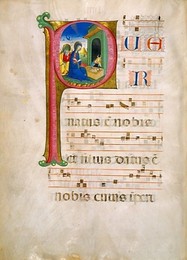 PUER
natus ē nobis
et filius datus ē
nobis cuius īperi